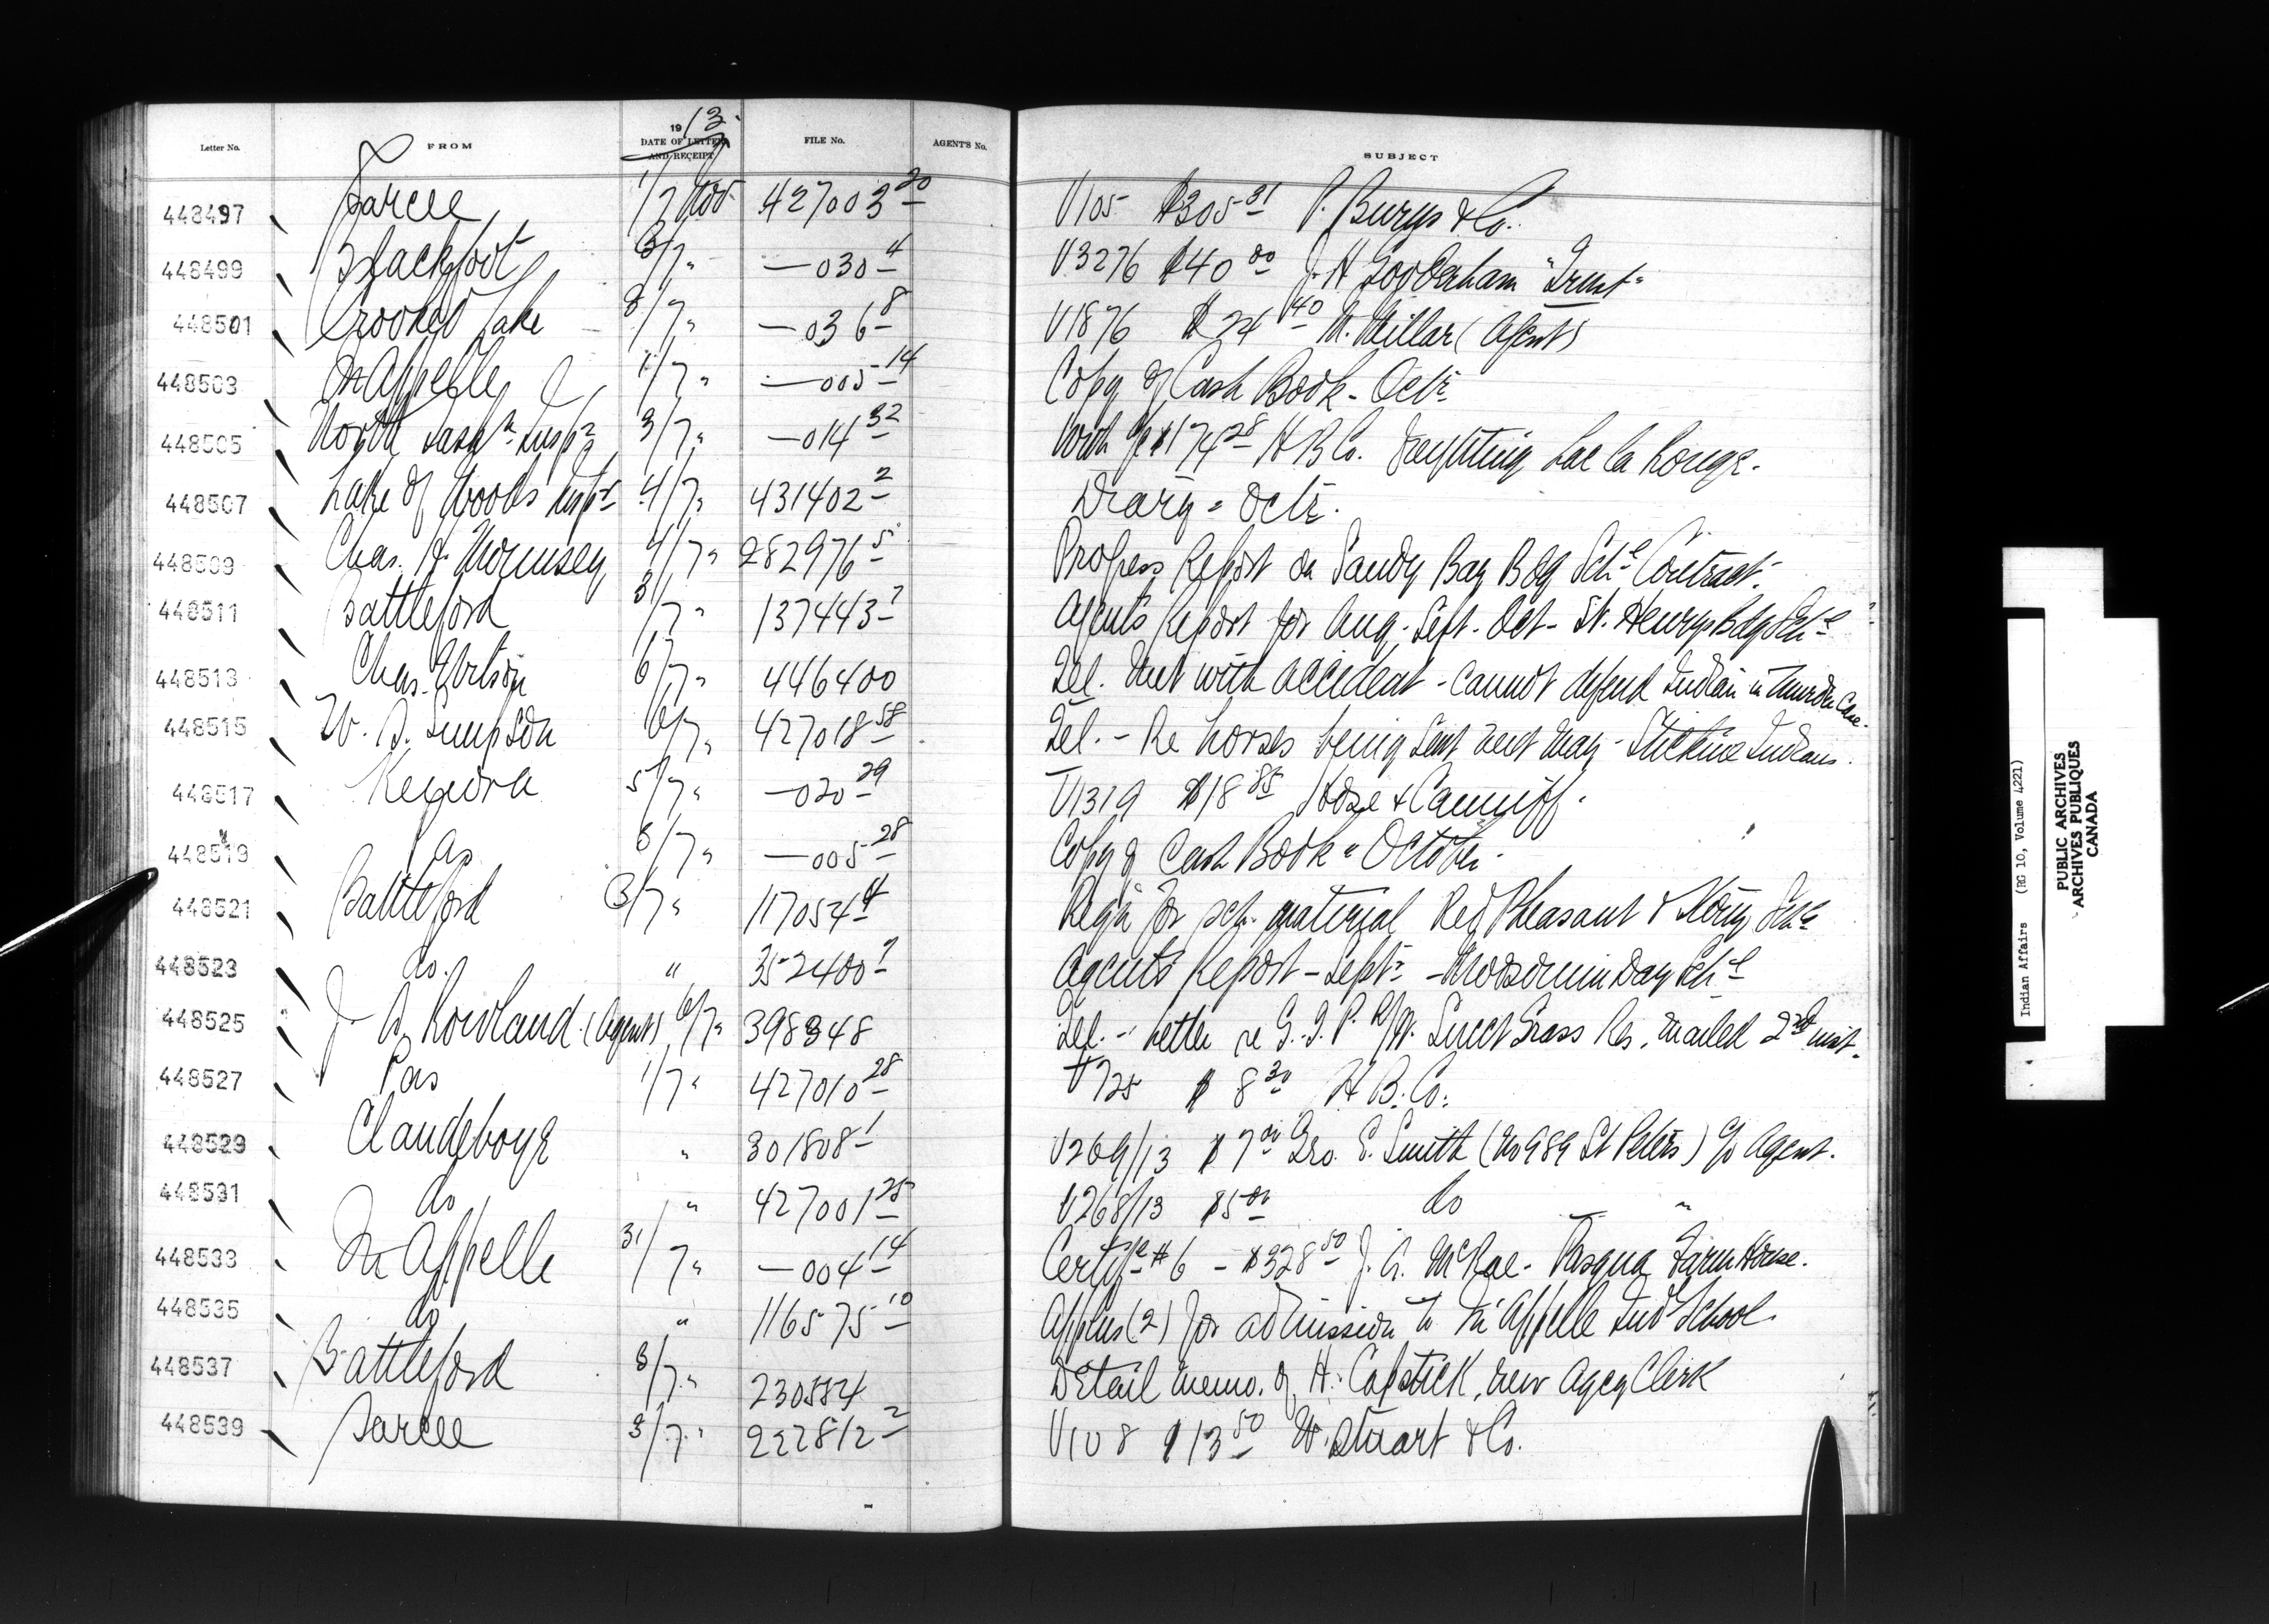 Letter No. FROM 1913 DATE OF LETTER AND RECEIPT FILE No. AGENT'S No. SUBJECT
448497 Sarcee 1/7 Nov 427003 20 V105 $305 31 P. Burns & Co.
448499 Blackfoot 3/7 " —030 4 V3276 $40 00 J. H Gooderham "Trust"
448501 Crooked Lake 3/7 " —036 8 V1876 $24 40 M. Millar (Agent)
448503 Qu'Appelle 1/7 " —005 14 Copy of Cash Book - Octr
448505 North Saskn Inspn 3/7 " —014 32 With a/c $174 28 H B Co. Lac la Ronge.
448507 Lake of Woods Inspt 4/7 " 431402 2 Diary - Octr.
448509 Chas. H. 4/7 " 282976 5 Progress Report on Sandy Bay Bdg Schl Contract.
448511 Battleford 3/7 " 137443 7 Agent's Report for Aug. Sept. Oct - St. Henrys Bdg Schl
448513 Chas. Wilson 6/7 " 446400 Tel. Met with accident - cannot defend Indian in Murder Case.
448515 W. S. Simpson 6/7 " 427018 58 Tel. - Re horses being sent next May - Stickine Indians.
448517 Kenora 5/7 " —020 29 V1319 $18 85 Hose & Canniff.
448519 do 6/7 " —005 28 Copy of Cash Book - October.
448521 Battleford 3/7 " 117054 4 Reqn for sch. material Red Pheasant & Stony Schs
448523 do. " 352400 7 Agent's Report - Septr - Moosomin Day Schl
448525 J. A. Rowland (Agent) 6/7 " 398348 Tel. - Letter re G. T. P. R/W. Sweet Grass Res. mailed 2nd inst.
448527 Pas 1/7 " 427010 28 V725 $ 8 30 H. B. Co.
448529 Clandeboye " 301808 1 V269/13 $7 00 Geo. E. Smith (No 989 St Peters) c/o Agent.
448531 do " 427001 25 V268/13 $5 00 do "
448533 Qu'Appelle 31/7 " —004 14 Certife #6 - $328 50 J. A. McRae - Pasqua Farm House.
448535 do " 116575 10 Applns (2) for admission to Qu'Appelle Ind School.
448537 Battleford 3/7 " 230584 Detail memo. of H. Capstick, new Agcy Clerk
448539 Sarcee 3/7 " 222812 2 V108 $13 50 W. Stuart & Co.
Indian Affairs (RG 10, Volume 4221)
PUBLIC ARCHIVES
ARCHIVES PUBLIQUES
CANADA